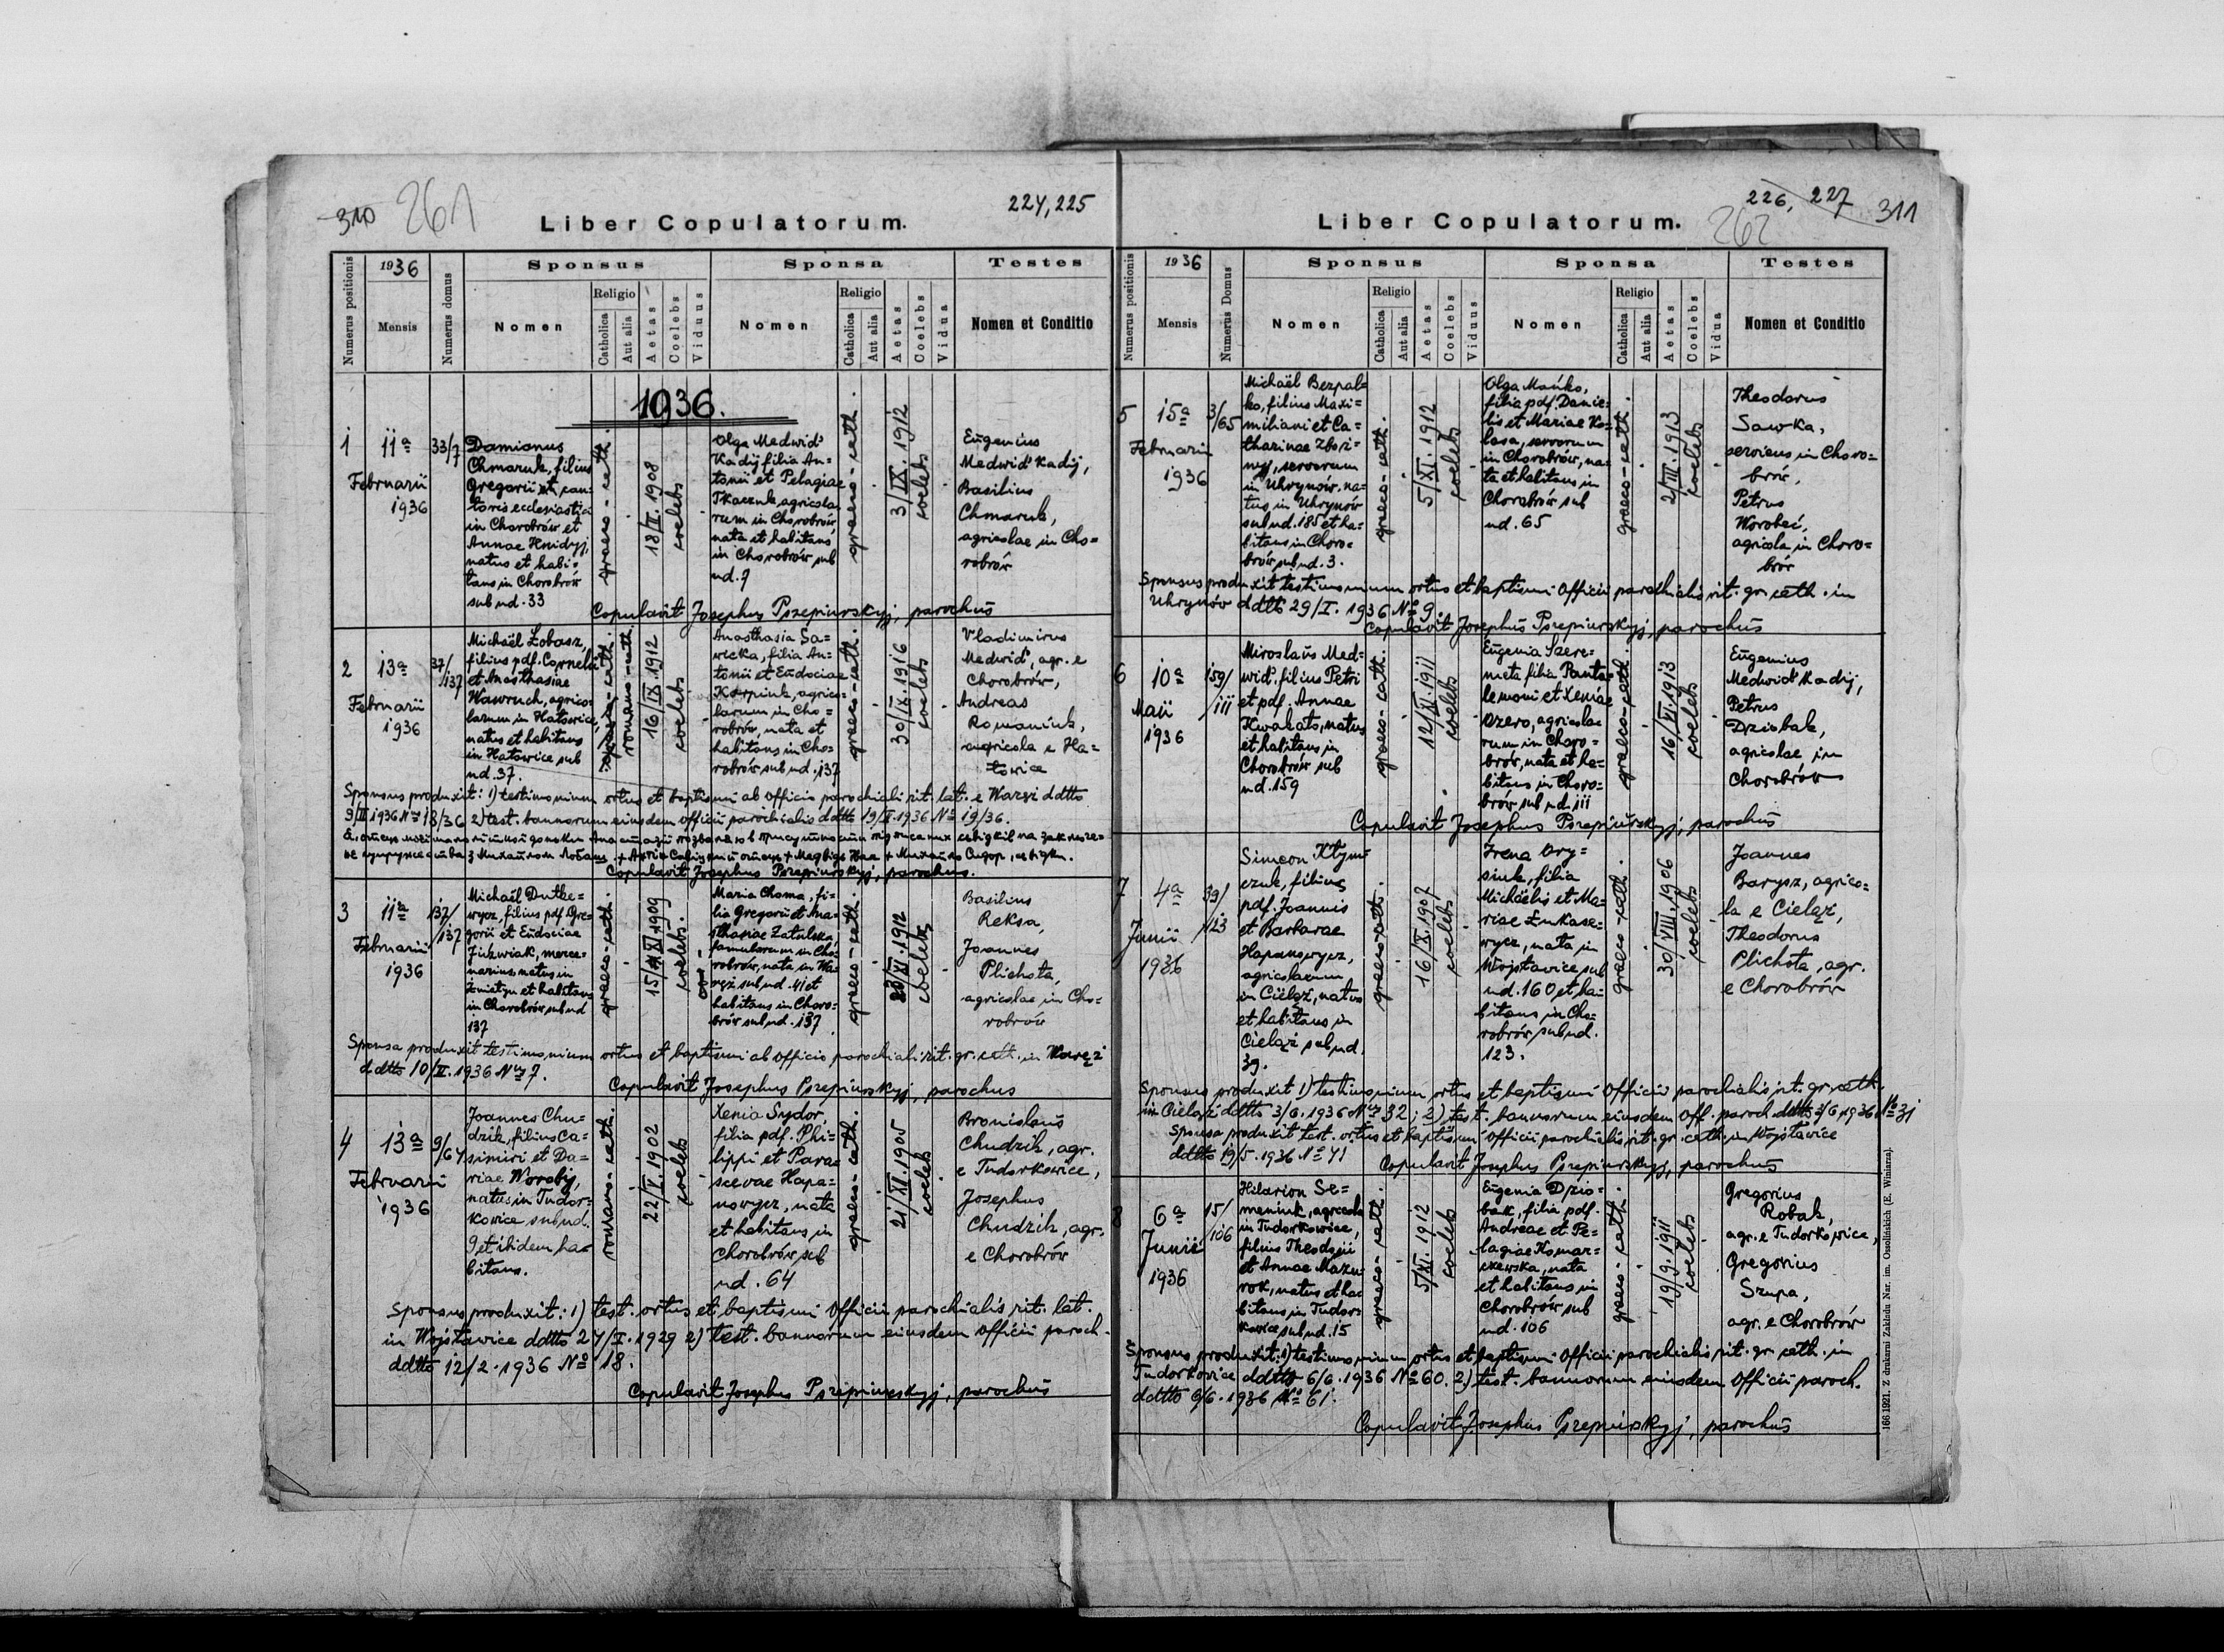 310 261
Liber Copulatorum.
224, 225
Numerus positionis
1936
Mensis
Numerus domus
Sponsus
Nomen
Religio
Catholica
Aut alia
Aetas
Coelebs
Viduus
Sponsa
Nomen
Religio
Catholica
Aut alia
Aetas
Coelebs
Vidua
Testes
Nomen et Conditio
1936.
1
11a
Februarii
1936
33/7
Damianus
Chmaruk, filius
Gregorii can=
toris ecclesiastici
in Chorobrów et
Annae Hnidyj,
natus et habi=
tans in Chorobrów
sub nd. 33
graeco-cath.
18/II. 1908
coelebs
Olga Medwid'
Kadij filia An=
tonii et Pelagiae
Tkaczuk agricola=
rum in Chorobrów
nata et habitans
in Chorobrów sub
nd. 7
graeco-cath.
3/IX. 1912
coelebs
Eugenius
Medwid' Kadij,
Basilius
Chmaruk,
agricolae in Cho=
robrów
Copulavit Josephus Przepiurskyj, parochus
2
13a
Februarii
1936
37/137
Michaël Łobasz,
filius pdf. Cornelii
et Anasthasiae
Wawruch, agrico=
larum in Hatowice,
natus et habitans
in Hatowice sub
nd. 37.
graeco-cath.
romano-cath.
16/IX. 1912
coelebs
Anasthasia Sa=
wicka, filia An=
tonii et Eudociae
Karpiuk, agrico=
larum in Cho=
robrów, nata et
habitans in Cho=
robrów sub nd. 137
graeco-cath.
30/IX. 1916
coelebs
Vladimirus
Medwid', agr. e
Chorobrów,
Andreas
Romaniuk,
agricola e Ha=
towice
Sponsus produxit: 1) testimonium ortus et baptismi ab officio parochiali rit. lat. e Waręż ddtto
9/II 1936 No 18/36 2) test. bannorum eiusdem officii parochialis ddtto 19/II. 1936 No 19/36.
Copulavit Josephus Przepiurskyj, parochus.
3
11a
Februarii
1936
137/137
Michaël Dutke=
wycz, filius pdf. Gre=
gorii et Eudociae
Juzwiak, merce=
narius natus in
et habitans
in Chorobrów sub nd
137
graeco-cath.
15/XI. 1909
coelebs.
Maria Choma, fi=
lia Gregorii et Ana=
sthasiae Zatulska,
famulorum in Cho=
robrów, nata in Wa=
ręż sub nd. 41 et
habitans in Choro=
brów sub nd. 137
graeco-cath.
23/XI. 1912
coelebs
Basilius
Reksa,
Joannes
Plichota,
agricolae in Cho=
robrów
Sponsa produxit testimonium ortus et baptismi ab officio parochiali rit. gr. cath. in Waręż
ddtto 10/II. 1936 Nr 7.
Copulavit Josephus Przepiurskyj, parochus
4
13a
Februarii
1936
9/64
Joannes Chu=
dzik, filius Ca=
simiri et Da=
riae Woroby,
natus in Tudor=
kowice sub nd.
9 et ibidem ha=
bitans.
romano-cath.
22/V. 1902
coelebs
Xenia Sydor,
filia pdf. Phi=
lippi et Para=
scevae Hapa=
nowycz, nata
et habitans in
Chorobrów sub
nd. 64
graeco-cath.
21/XII. 1905
coelebs
Bronislaus
Chudzik, agr.
e Tudorkowice,
Josephus
Chudzik, agr.
e Chorobrów
Sponsus produxit: 1) test. ortus et baptismi Officii parochialis rit. lat.
in Wojsławice ddtto 24/I. 1929 2) test. bannorum eiusdem officii paroch.
ddtto 12/2. 1936 No 18.
Copulavit Josephus Przepiurskyj, parochus
226, 227 311
Liber Copulatorum.
262
Numerus positionis
1936
Mensis
Numerus Domus
Sponsus
Nomen
Religio
Catholica
Aut alia
Aetas
Coelebs
Viduus
Sponsa
Nomen
Religio
Catholica
Aut alia
Aetas
Coelebs
Vidua
Testes
Nomen et Conditio
5
15a
Februarii
1936
3/65
Michaël Bezpal=
ko, filius Maxi=
miliani et Ca=
tharinae Zbori=
nyj, servorum
in Uhrynów, na=
tus in Uhrynów
sub nd. 185 et ha=
bitans in Choro=
brów sub nd. 3.
graeco-cath.
5/XI. 1912
coelebs
Olga Mańko,
filia pdf. Danie=
lis et Mariae Ko=
lasa, servorum
in Chorobrów, na=
ta et habitans in
Chorobrów sub
nd. 65
graeco-cath.
2/III. 1913
coelebs
Theodorus
Sawka,
serviens in Choro=
brów,
Petrus
Worobeć,
agricola in Choro=
brów
Sponsus produxit testimonium ortus et baptismi Officii parochialis rit. gr. cath. in
Uhrynów ddtto 29/I. 1936 No 9.
Copulavit Josephus Przepiurskyj, parochus
6
10a
Maii
1936
159/111
Miroslaus Med=
wid', filius Petri
et pdf. Annae
Kwakato, natus
et habitans in
Chorobrów sub
nd. 159
graeco-cath.
12/XI. 1911
coelebs
Eugenia Szere=
meta filia Panta=
lemoni et Xeniae
Ozero, agricola=
rum in Choro=
brów, nata et ha=
bitans in Choro=
brów sub nd. 111
graeco-cath.
16/XI. 1913
coelebs
Eugenius
Medwid' Kadij,
Petrus
Dziobak,
agricolae in
Chorobrów
Copulavit Josephus Przepiurskyj, parochus
7
4a
Junii
1936
39/123
Simeon Kłym=
czuk, filius
pdf. Joannis
et Barbarae
Hapanowycz,
agricolarum
in Cieląż, natus
et habitans in
Cieląż sub nd.
39.
graeco-cath.
16/X. 1907
coelebs
Irena Ory=
siuk, filia
Michaëlis et Ma=
riae Łukase=
wycz, nata in
Wojsławice sub
nd. 160 et ha=
bitans in Cho=
robrów sub nd.
123.
graeco-cath.
30/VIII. 1906
coelebs
Joannes
Barysz, agrico=
la e Cieląż,
Theodorus
Plichota, agr.
e Chorobrów
Sponsus produxit 1) testimonium ortus et baptismi Officii parochialis rit. gr. cath.
in Cieląż ddtto 3/6. 1936 Nr 32; 2) test. bannorum eiusdem Off. paroch. ddtto 3/6 1936 No 31
Sponsa produxit test. ortus et baptismi Officii parochialis rit. gr. cath. in Wojsławice
ddtto 19/5. 1936 No 41
Copulavit Josephus Przepiurskyj, parochus
8
6a
Junii
1936
15/106
Hilarion Se=
meniuk, agricola
in Tudorkowice,
filius Theodosii
et Annae Mazu=
rok, natus et ha=
bitans in Tudor=
kowice sub nd. 15
graeco-cath.
5/XI. 1912
coelebs
Eugenia Dzio=
bak, filia pdf.
Andreae et Pe=
lagiae Komar=
czewska, nata
et habitans in
Chorobrów sub
nd. 106
graeco-cath.
19/9. 1911
coelebs
Gregorius
Robak,
agr. e Tudorkowice,
Gregorius
Szupa,
agr. e Chorobrów
Sponsus produxit: 1) testimonium ortus et baptismi Officii parochialis rit. gr. cath. in
Tudorkowice ddtto 6/6. 1936 No 60. 2) test. bannorum eiusdem Officii paroch.
ddtto 6/6. 1936 No 61.
Copulavit Josephus Przepiurskyj, parochus
166 1921. Z drukarni Zakładu Nar. im. Ossolińskich (E. Winiarz).